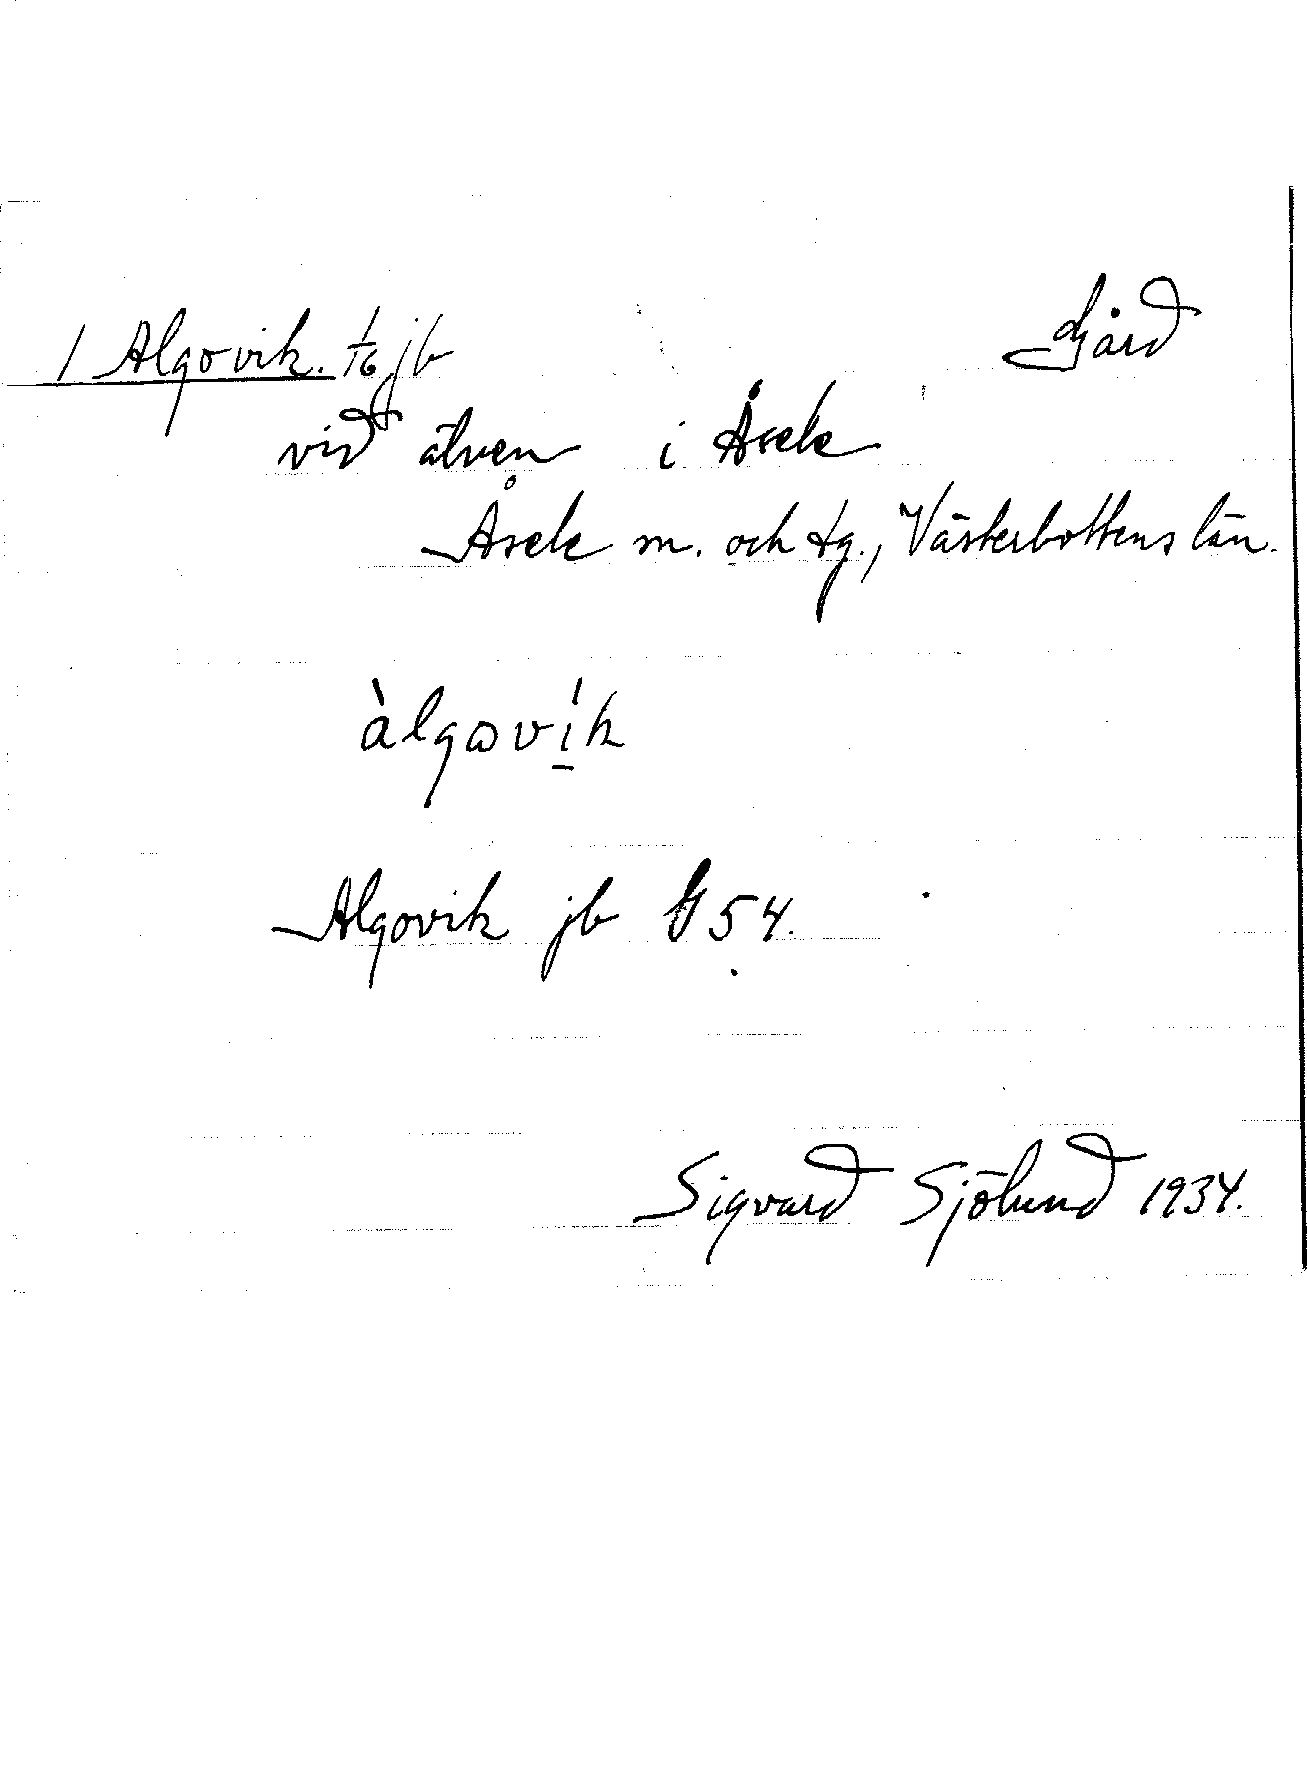 1 Algovik. 1/16 jb Gård
vid älven i Åsele
Åsele sn. och tg., Västerbottens län.
àlgωví̱k
Algovik jb 54.
Sigvard Sjölund 1934.